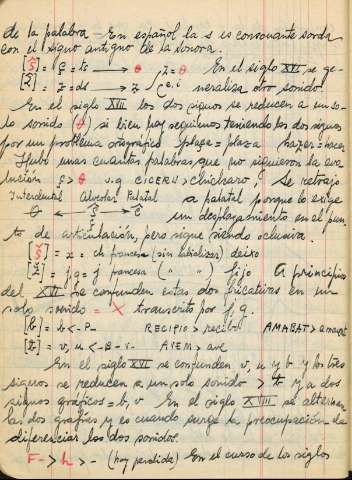 de la palabra - En español la s es consonante sorda
con el signo antiguo de la sonora.
[ŝ] = ç = ts → θ z = θ En el siglo XVI se ge-
[ẑ] = z = ds → z / c e, i neraliza otro sonido.
En el siglo XVIII los dos signos se reducen a un so-
lo sonido (θ) si bien hoy seguimos teniendo los dos signos
por un problema ortográfico plaça = plaza hazer = hacer
Hubo unas cuantas palabras que no siguieron la evo
lución ç > θ v.g CICERU > chícharo; Se retrajo
Interdental Alveolar Palatal a palatal porque lo exige
θ ← ŝ → ĉ un desplazamiento en el pun
to de articulación, pero sigue siendo oclusiva.
[š] = x = ch francesa (sin labializar) deixo
[ž] = j, g = j francesa ( " " ) fijo A principios
del XVII se confunden estas dos fricativas en un
solo sonido = X transcrito por j, g.
[b] = b < -P- RECIPIO > recibo AMABAT > amavat
= v, u < -B- -V- AVEM > ave
En el siglo XVI se confunden v, u y b y los tres
signos se reducen a un solo sonido > b y a dos
signos gráficos = b, v En el siglo XVIII se alternan
las dos grafías y es cuando surge la preocupación de
diferenciar los dos sonidos.
F- > h > - (hoy perdida) En el curso de los siglos